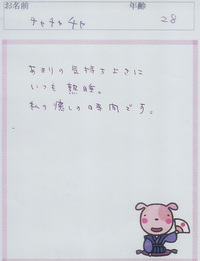 お名前 年齢
チャチャチャ 28
あまりの気持ちよさに
いつも熟睡。
私の癒しの時間です。